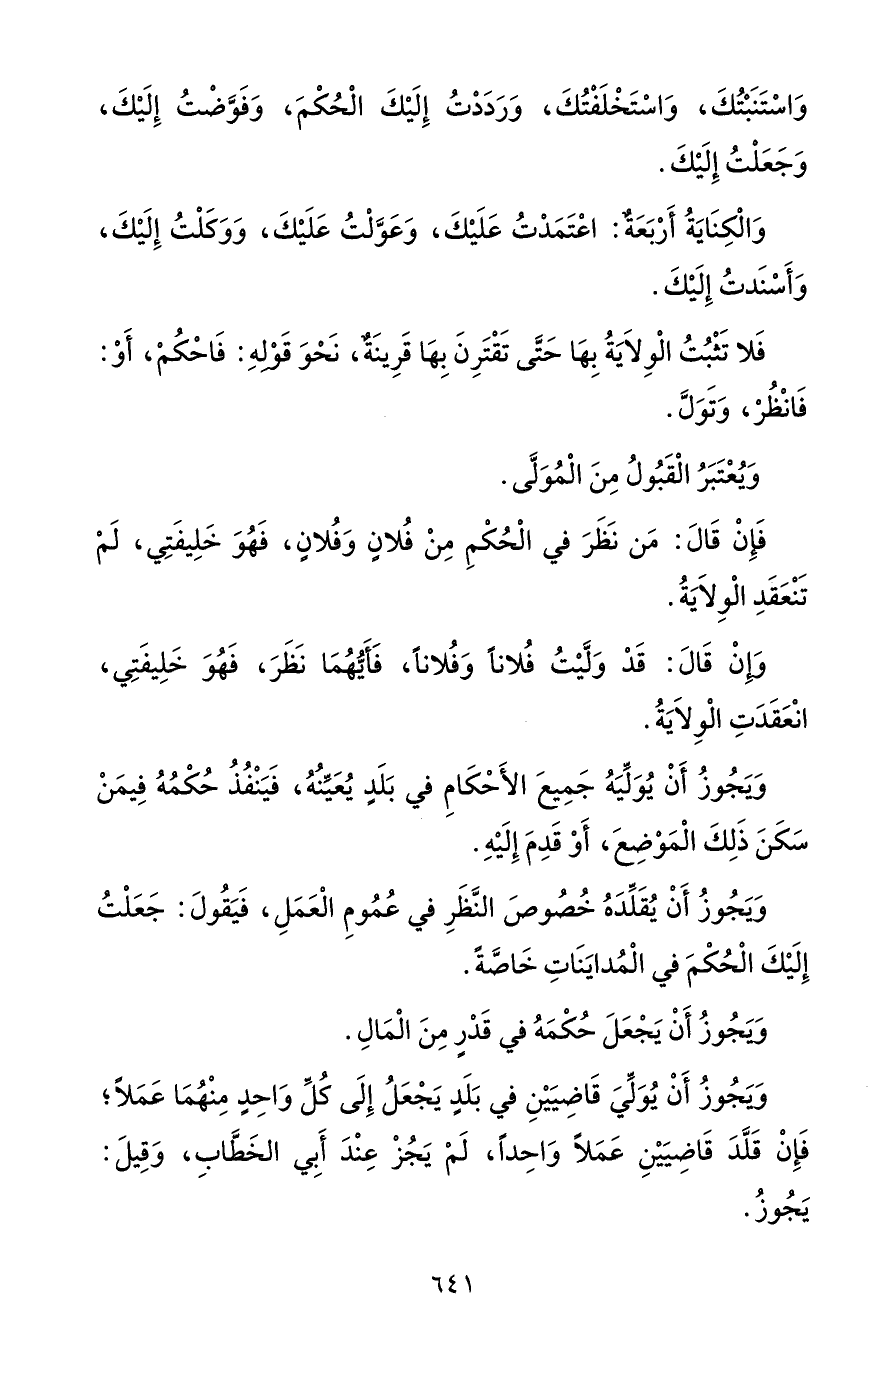 وَاسْتَنَبْتُكَ، وَاسْتَخْلَفْتُكَ، وَرَدَدْتُ إِلَيْكَ الْحُكْمَ، وَفَوَّضْتُ إِلَيْكَ،
وَجَعَلْتُ إِلَيْكَ.
وَالْكِنَايَةُ أَرْبَعَةٌ: اعْتَمَدْتُ عَلَيْكَ، وَعَوَّلْتُ عَلَيْكَ، وَوَكَلْتُ إِلَيْكَ،
وَأَسْنَدتُ إِلَيْكَ.
فَلا تَثْبُتُ الْوِلاَيَةُ بِهَا حَتَّى تَقْتَرِنَ بِهَا قَرِينَةٌ، نَحْوَ قَوْلِهِ: فَاحْكُمْ، أَوْ:
فَانْظُرْ، وَتَوَلَّ.
وَيُعْتَبَرُ الْقَبُولُ مِنَ الْمُوَلَّى.
فَإِنْ قَالَ: مَن نَظَرَ في الْحُكْمِ مِنْ فُلانٍ وَفُلانٍ، فَهُوَ خَلِيفَتِي، لَمْ
تَنْعَقَدِ الْوِلاَيَةُ.
وَإِنْ قَالَ: قَدْ وَلَّيْتُ فُلاناً وَفُلاناً، فَأَيُّهُمَا نَظَرَ، فَهُوَ خَلِيفَتِي،
انْعَقَدَتِ الْوِلاَيَةُ.
وَيَجُوزُ أَنْ يُوَلِّيَهُ جَمِيعَ الأَحْكَامِ في بَلَدٍ يُعَيِّنُهُ، فَيَنْفُذُ حُكْمُهُ فِيمَنْ
سَكَنَ ذَلِكَ الْمَوْضِعَ، أَوْ قَدِمَ إِلَيْهِ.
وَيَجُوزُ أَنْ يُقَلِّدَهُ خُصُوصَ النَّظَرِ في عُمُومِ الْعَمَلِ، فَيَقُولَ: جَعَلْتُ
إِلَيْكَ الْحُكْمَ في الْمُدايَنَاتِ خَاصَّةً.
وَيَجُوزُ أَنْ يَجْعَلَ حُكْمَهُ في قَدْرٍ مِنَ الْمَالِ.
وَيَجُوزُ أَنْ يُوَلِّيَ قَاضِيَيْنِ في بَلَدٍ يَجْعَلُ إِلَى كُلِّ وَاحِدٍ مِنْهُمَا عَمَلاً؛
فَإِنْ قَلَّدَ قَاضِيَيْنِ عَمَلاً وَاحِداً، لَمْ يَجُزْ عِنْدَ أَبِي الخَطَّابِ، وَقِيلَ:
يَجُوزُ.
٦٤١